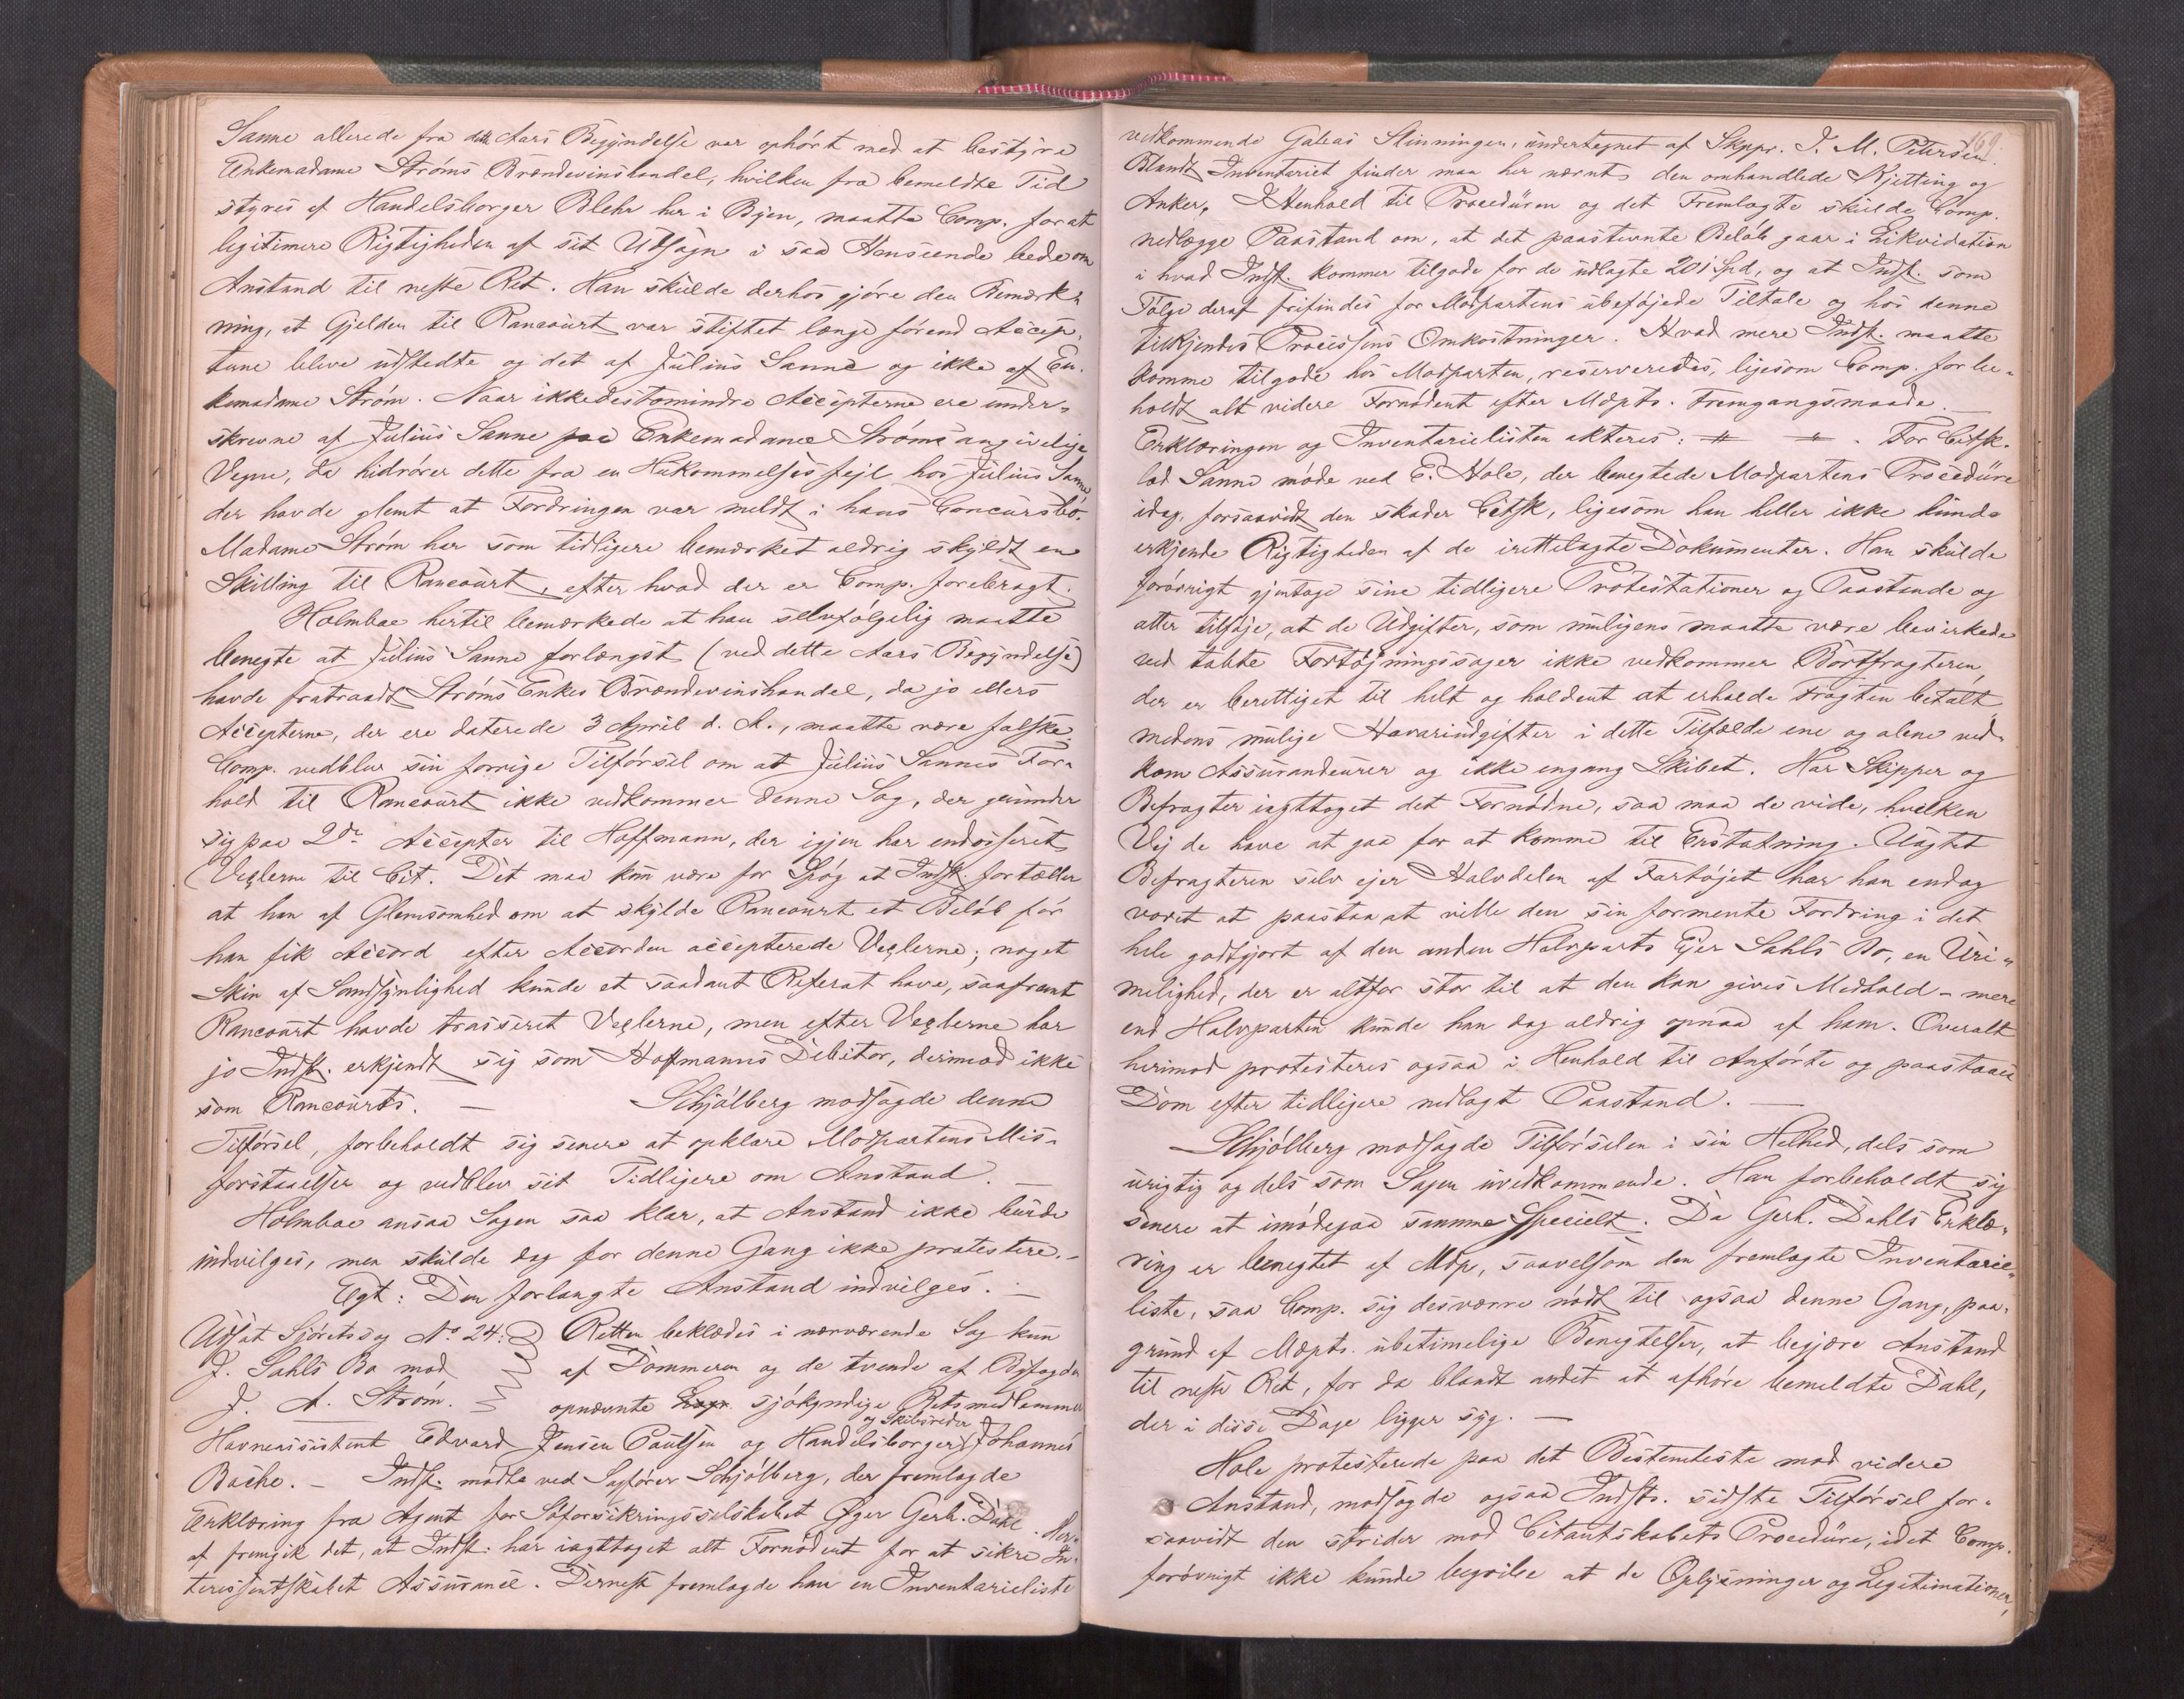 Sanne allerede fra dette Aars Begyndelse var ophørt med at bestyre
Enkemadame Strøms Brændevinshandel, hvilken fra bemeldte Tid
styres af Handelsborger Blehr her i Byen, maatte Comp. for at
legitimere Rigtigheden af sit Udsagn i saa Henseende bede om
Anstand til neste Ret. Han skulde derhos gjøre den Bemærk-
ning, at Gjelden til Rancourt var stiftet længe førend Accep-
terne bleve udstedte og det af Julius Sanne og ikke af En-
kemadame Strøm. Naar ikkedestomindre Accepterne ere under-
skrevne af Julius Sanne paa Enkemadame Strøms angivelige
Vegne, da hidrører dette fra en Hukommelsesfejl hos Julius Sanne,
der havde glemt at Fordringen var meldt i hans Concursbo.
Madame Strøm har som tidligere bemærket aldrig skyldt en
Skilling til Rancourt, efter hvad der er Comp. forebragt.
Holmboe hertil bemærkede at han selvfølgelig maatte
benegte at Julius Sanne forlængst (ved dette Aars Begyndelse)
havde fratraadt Strøms Enkes Brændevinshandel, da jo ellers
Accepterne, der ere daterede 3 April d. A., maatte være falske.
Comp. vedblev sin forrige Tilførsel om at Julius Sannes For-
hold til Rancourt ikke vedkommer denne Sag, der grunder
sig paa 2de Accepter til Hoffmann, der igjen har endosseret
Vexlerne til Cit. Det maa kun være for Spøg at Indst. fortæller
at han af Glemsomhed om at skylde Rancourt et Beløb før
han fik Accord efter Accorden accepterede Vexlerne; noget
Skin af Sandsynlighed kunde et saadant Referat have, saafremt
Rancourt havde trasseret Vexlerne, men efter Vexlerne har
jo Indst. erkjendt sig som Hoffmanns Debitor, derimod ikke
som Rancourts. — Schjølberg modsagde denne
Tilførsel, forbeholdt sig senere at opklare Modpartens Mis-
forstaaelser og vedblev sit Tidligere om Anstand. —
Holmboe ansaa Sagen saa klar, at Anstand ikke burde
indvilges, men skulde dog for denne Gang ikke protestere. —
Egt: Den forlangte Anstand indvilges. —
Udsat Sjøretssag No 24: Retten beklædes i nærværende Sag kun
J. Sahls Bo mod af Dommeren og de tvende af Byfogden
J. A. Strøm. opnævnte sjøkyndige Retsmedlemmer
Havneassistent Edvard Jensen Paulsen og Handelsborger og Skibsreder Johannes
Backe. — Indst. mødte ved Sagfører Schjølberg, der fremlagde
Erklæring fra Agent for Søforsikringsselskabet Øger Gerh. Dahl. Her-
af fremgik det, at Indst. har iagttaget alt Fornødent for at sikre In-
teressentskabet Assurance. Dernest fremlagde han en Inventarieliste
169.
vedkommende Galeas Slinningen, undertegnet af Skppr. J. M. Petersen.
Blandt Inventariet finder maa her nævnt den omhandlede Kjetting og
Anker. I Henhold til Proceduren og det Fremlagte skulde Comp.
nedlægge Paastand om, at det paastevnte Beløb gaar i Likvidation
i hvad Indst. kommer tilgode for de udlagte 201 Spd, og at Indst. som
Følge deraf frifindes for Modpartens ubeføjede Tiltale og hos denne
tilkjendes Processens Omkostninger. Hvad mere Indst. maatte
komme tilgode hos Modparten, reserveredes, ligesom Comp. forbe-
holdt alt videre Fornødent efter Mdpts. Fremgangsmaade. —
Erklæringen og Inventarielisten akteres: # — #. For Citsk.
lod Sanne møde ved E. Hole, der benegtede Modpartens Procedure
idag, forsaavidt den skader Citsk, ligesom han heller ikke kunde
erkjende Rigtigheden af de irettelagte Dokumenter. Han skulde
forøvrigt gjentage sine tidligere Protestationer og Paastande og
atter tilføje, at de Udgifter, som muligens maatte være bevirkede
ved tabte Fortøjningssager ikke vedkommer Bortfragteren,
der er berettiget til helt og holdent at erholde Fragten betalt
medens mulige Havariudgifter i dette Tilfælde ene og alene ved-
kom Assurandeurer og ikke engang Skibet. Har Skipper og
Befragter iagttaget det Fornødne, saa maa de vide, hvilken
Vej de have at gaa for at komme til Erstatning. Uagtet
Befragteren selv ejer Halvdelen af Fartøjet har han endog
vovet at paastaa at ville den sin formente Fordring i det
hele godtgjort af den anden Halvparts Ejer Sahls Bo, en Uri-
melighed, der er altfor stor til at den kan gives Medhold – mere
end Halvparten kunde han dog aldrig opnaa af ham. Overalt
herimod protesteres ogsaa i Henhold til Anførte og paastaaes
Dom efter tidligere nedlagt Paastand. —
Schjølberg modsagde Tilførselen i sin Helhed, dels som
urigtig og dels som Sagen uvedkommende. Han forbeholdt sig
senere at imødegaa samme specielt. Da Gerh. Dahls Erklæ-
ring er benegtet af Mdp, saavelsom den fremlagte Inventarie-
liste, saa Comp. sig desværre nødt til ogsaa denne Gang, paa-
grund af Mdpts. ubetimelige Benegtelser, at begjære Anstand
til neste Ret, for da blandt andet at afhøre bemeldte Dahl,
der i disse Dage ligger syg. —
Hole protesterede paa det Bestemteste mod videre
Anstand, modsagde ogsaa Indsts. sidste Tilførsel for-
saavidt den strider mod Citantskabets Procedure, idet Comp.
forøvrigt ikke kunde begribe at de Oplysninger og Legitimationer,